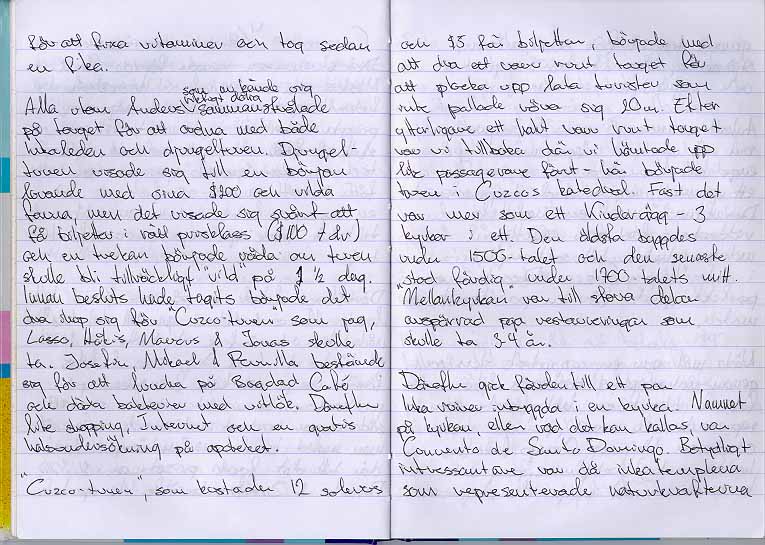 för att fixa vitaminer och tog sedan
en fika.
som ankände sig
riktigt dåliga
Alla utom Anders sammanstrålade
på torget för att ordna med både
Inkaleden och djungelturen. Djungel-
turen visade sig till en början
lovande med sina $200 och vilda
fauna, men det visade sig svårt att
få biljetter i rätt prisklass ($100 t&r)
och en tvekan började råda om turen
skulle bli tillräckligt "vild" på 1 1/2 dag.
Innan besluts hade tagits började det
dra ihop sig för "Cuzco-turen" som jag,
Lasso, Hökis, Marcus & Jonas skulle
ta. Josefin, Mikael & Pernilla bestämde
sig för att luncha på Bagdad Café
och döda bakterier med vitlök. Därefter
lite shopping, Internet och en gratis
hälsoundersökning på apoteket.
"Cuzco-turen", som kostade 12 soleros
och $5 för biljetten, började med
att dra ett varv runt torget för
att plocka upp lata turister som
inte pallade röra sig 20m. Efter
ytterligare ett halvt varv runt torget
var vi tillbaka där vi hämtade upp
lite passagerare förut - här började
turen i Cuzcos katedral. Fast det
var mer som ett Kinderägg - 3
kyrkor i ett. Den äldsta byggdes
under 1500-talet och den senaste
stod färdig under 1700-talets mitt.
"Mellankyrkan" var till stora delar
avspärrad pga restaureringar som
skulle ta 3-4 år.
Därefter gick färden till ett par
Inka ruiner inbyggda i en kyrka. Namnet
på kyrkan, eller vad det kan kallas, var
Convento de Santo Domingo. Betydligt
intressantare var då inkatemplena
som representerade naturkrafterna